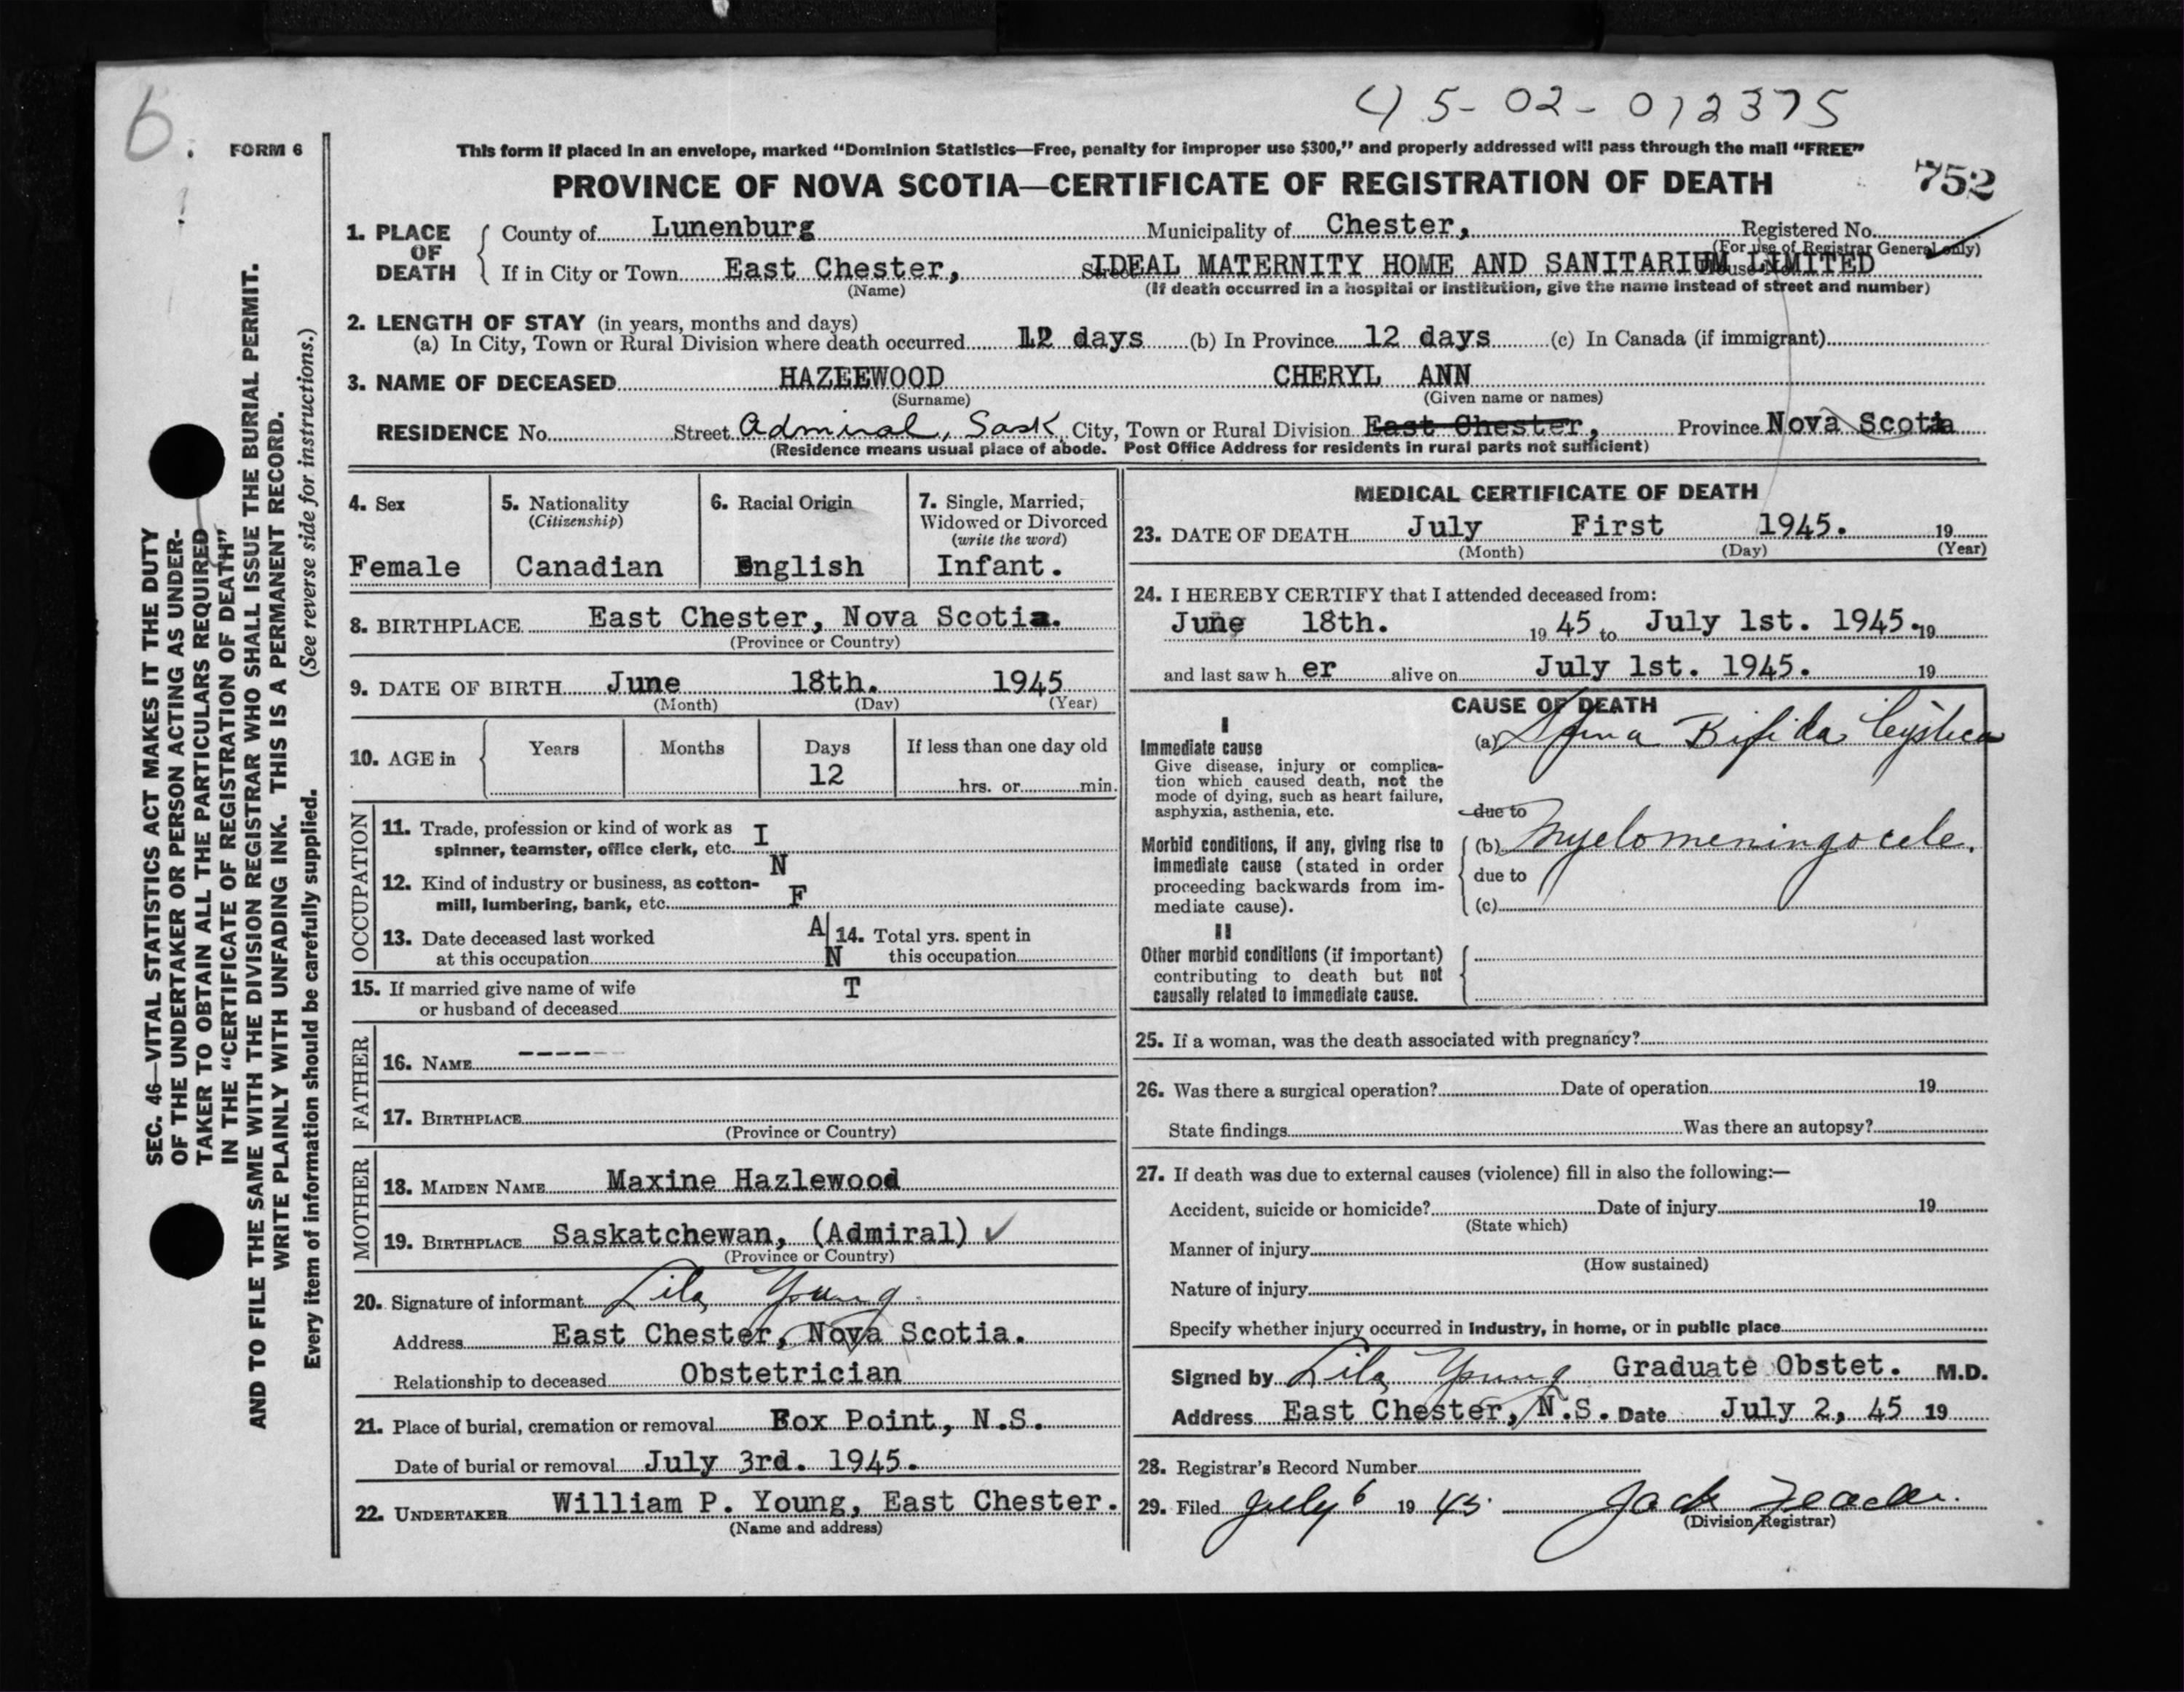 6.
45-02-012375
FORM 6
This form if placed in an envelope, marked “Dominion Statistics—Free, penalty for improper use $300,” and properly addressed will pass through the mail “FREE”
PROVINCE OF NOVA SCOTIA—CERTIFICATE OF REGISTRATION OF DEATH
752
1. PLACE OF DEATH
County of Lunenburg Municipality of Chester, Registered No.
(For use of Registrar General only)
If in City or Town East Chester, Street IDEAL MATERNITY HOME AND SANITARIUM LIMITED
(Name) (If death occurred in a hospital or institution, give the name instead of street and number)
2. LENGTH OF STAY (in years, months and days)
(a) In City, Town or Rural Division where death occurred 12 days (b) In Province 12 days (c) In Canada (if immigrant)
3. NAME OF DECEASED HAZEEWOOD CHERYL ANN
(Surname) (Given name or names)
RESIDENCE No. Street Admiral, Sask City, Town or Rural Division East Chester, Province Nova Scotia
(Residence means usual place of abode. Post Office Address for residents in rural parts not sufficient)
4. Sex
Female
5. Nationality
(Citizenship)
Canadian
6. Racial Origin
English
7. Single, Married,
Widowed or Divorced
(write the word)
Infant.
8. BIRTHPLACE East Chester, Nova Scotia.
(Province or Country)
9. DATE OF BIRTH June 18th. 1945
(Month) (Day) (Year)
10. AGE in
Years Months Days If less than one day old
12 hrs. or min.
OCCUPATION
11. Trade, profession or kind of work as I
spinner, teamster, office clerk, etc.
N
12. Kind of industry or business, as cotton-
mill, lumbering, bank, etc. F
A
13. Date deceased last worked
at this occupation N
14. Total yrs. spent in
this occupation
15. If married give name of wife T
or husband of deceased
FATHER
16. NAME ------
17. BIRTHPLACE
(Province or Country)
MOTHER
18. MAIDEN NAME Maxine Hazlewood
19. BIRTHPLACE Saskatchewan, (Admiral) ✓
(Province or Country)
20. Signature of informant Lila Young
Address East Chester, Nova Scotia.
Relationship to deceased Obstetrician
21. Place of burial, cremation or removal Fox Point, N.S.
Date of burial or removal July 3rd. 1945.
22. UNDERTAKER William P. Young, East Chester.
(Name and address)
MEDICAL CERTIFICATE OF DEATH
23. DATE OF DEATH July First 1945. 19
(Month) (Day) (Year)
24. I HEREBY CERTIFY that I attended deceased from:
June 18th. 19 45 to July 1st. 1945. 19
and last saw h er alive on July 1st. 1945. 19
CAUSE OF DEATH
I
Immediate cause
Give disease, injury or complica-
tion which caused death, not the
mode of dying, such as heart failure,
asphyxia, asthenia, etc.
(a) Spina Bifida Cystica
due to
Morbid conditions, if any, giving rise to
immediate cause (stated in order
proceeding backwards from im-
mediate cause).
(b) Myelomeningocele.
due to
(c)
II
Other morbid conditions (if important)
contributing to death but not
causally related to immediate cause.
25. If a woman, was the death associated with pregnancy?
26. Was there a surgical operation? Date of operation 19
State findings Was there an autopsy?
27. If death was due to external causes (violence) fill in also the following:—
Accident, suicide or homicide? Date of injury 19
(State which)
Manner of injury
(How sustained)
Nature of injury
Specify whether injury occurred in industry, in home, or in public place
Signed by Lila Young Graduate Obstet. M.D.
Address East Chester, N.S. Date July 2, 45 19
28. Registrar's Record Number
29. Filed July 6 19 45. Jack
(Division Registrar)
SEC. 46—VITAL STATISTICS ACT MAKES IT THE DUTY
OF THE UNDERTAKER OR PERSON ACTING AS UNDER-
TAKER TO OBTAIN ALL THE PARTICULARS REQUIRED
IN THE “CERTIFICATE OF REGISTRATION OF DEATH”
AND TO FILE THE SAME WITH THE DIVISION REGISTRAR WHO SHALL ISSUE THE BURIAL PERMIT.
WRITE PLAINLY WITH UNFADING INK. THIS IS A PERMANENT RECORD.
Every item of information should be carefully supplied. (See reverse side for instructions.)